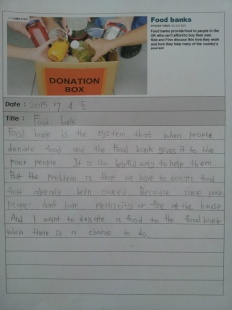 DONATION
BOX
Food banks
Food banks provide food to people in the
UK who can't afford to buy their own.
Rob and Finn discuss this how they work
and how they help many of the country's
poorest
Date : 2015. 7. 4
Title : Food bank
Food bank is the system that when people
donate food and the food bank gives it to the
poor people. It is the helpful way to help them.
But the problem is that we have to donate food
that already been cooked. Because some poor
people don't have electricity or fire at the house
And I want to donate a food to the food bank
when there is a chance to do.